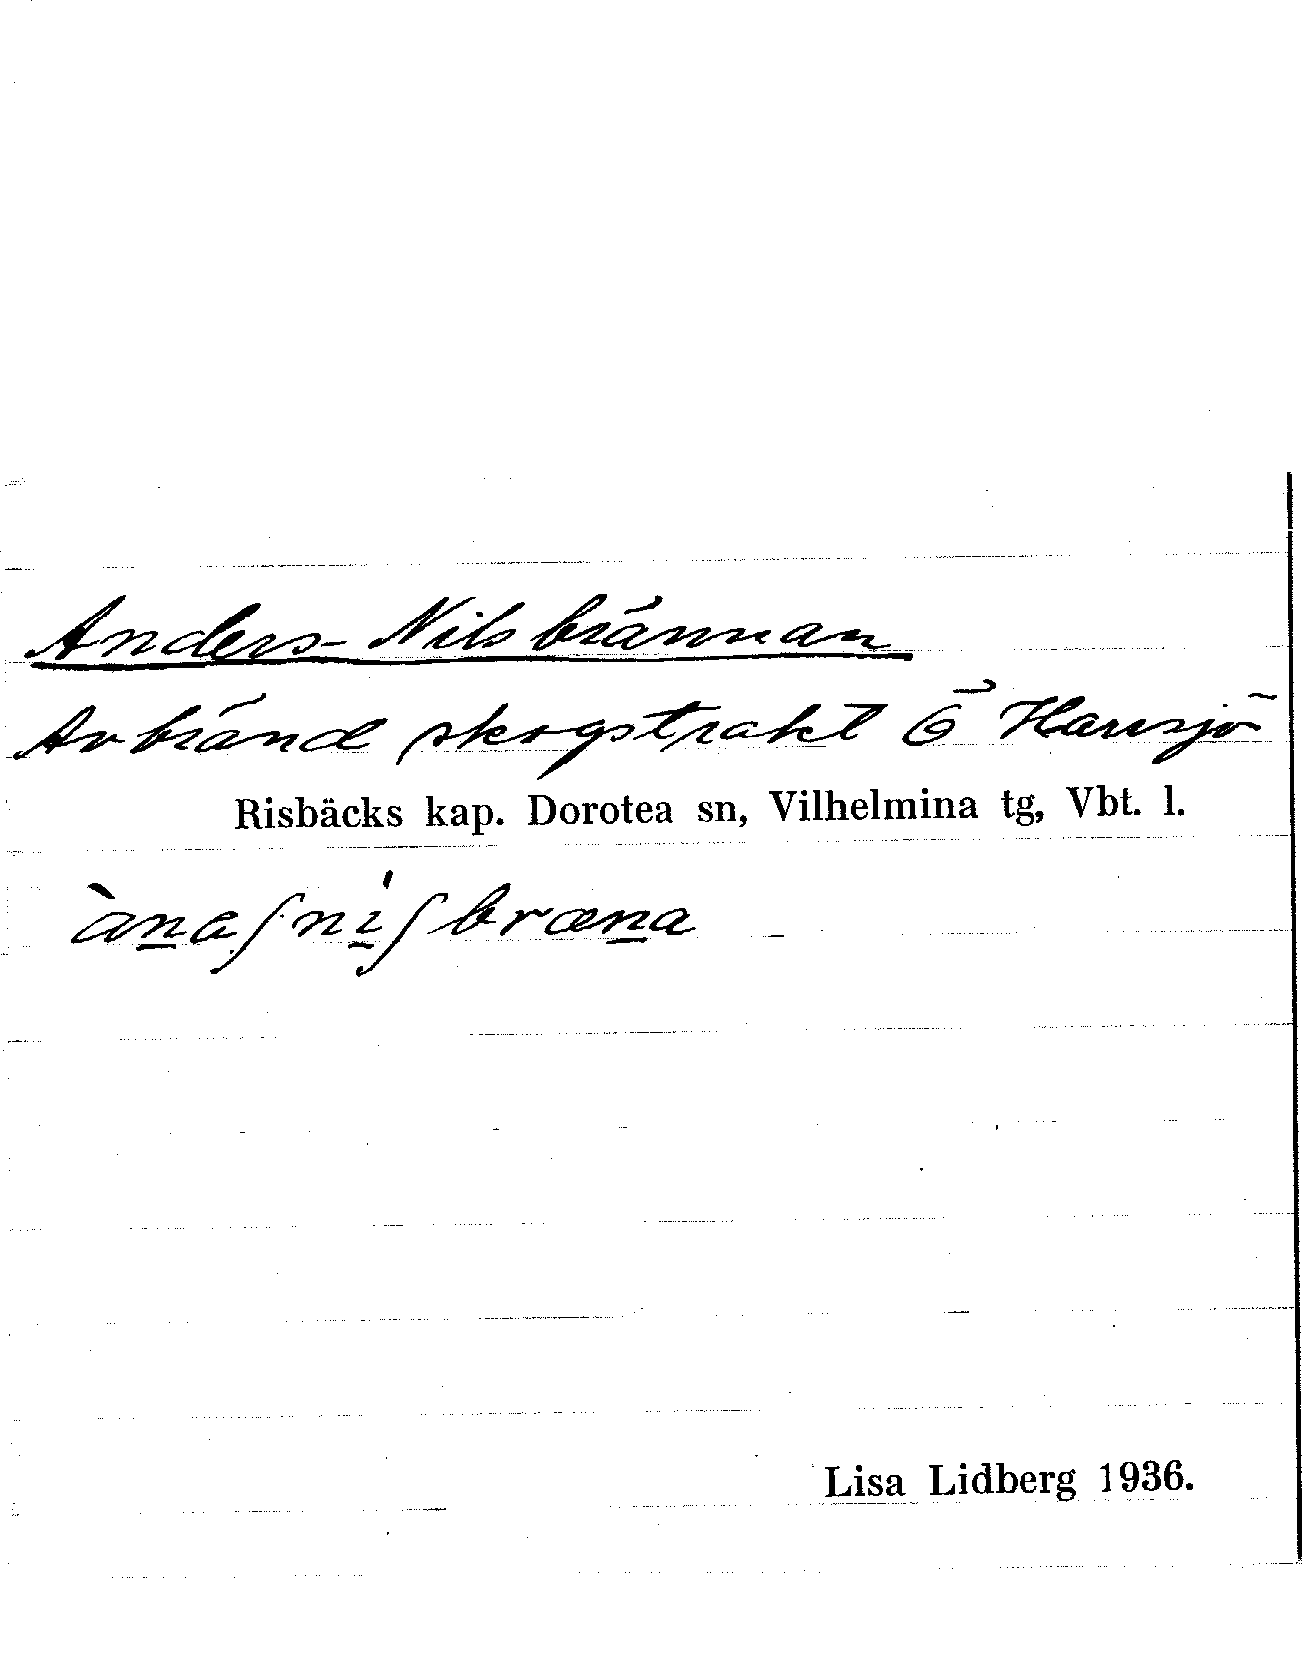 Anders-Nilsbrännan
Avbränd skogstrakt Ö Harrsjö
Risbäcks kap. Dorotea sn, Vilhelmina tg, Vbt. l.
àn̲aʃni̲ʃbræn̲a
Lisa Lidberg 1936.